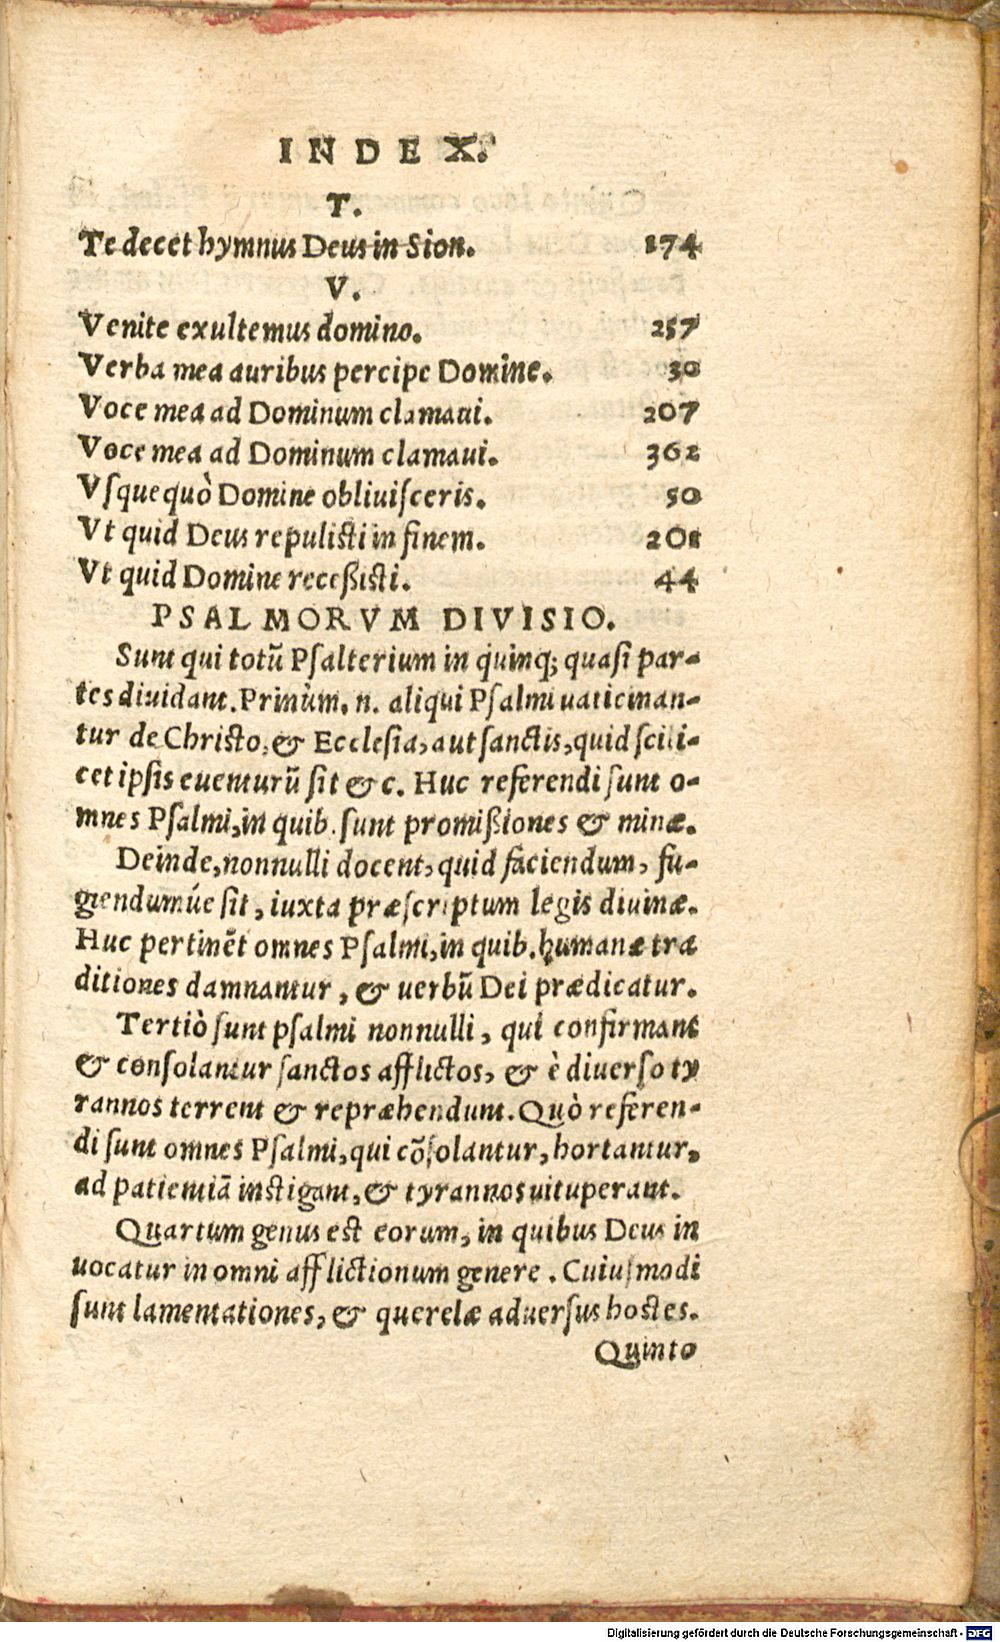 INDEX.
T.
Te decet hymnus Deus in Sion. 174
V.
Venite exultemus domino. 257
Verba mea auribus percipe Domine. 30
Voce mea ad Dominum clamaui. 207
Voce mea ad Dominum clamaui. 362
Vſquequò Domine obliuiſceris. 50
Vt quid Deus repulisti in finem. 201
Vt quid Domine receßisti. 44
PSALMORVM DIVISIO.
Sunt qui totũ Pſalterium in quinq; quaſi par-
tes diuidant. Primùm. n. aliqui Pſalmi uaticinan-
tur de Christo, & Eccleſia, aut ſanctis, quid ſcili-
cet ipſis euenturũ ſit & c. Huc referendi ſunt o-
mnes Pſalmi, in quib. ſunt promißiones & minæ.
Deinde, nonnulli docent, quid faciendum, fu-
giendumúe ſit, iuxta præſcriptum legis diuinæ.
Huc pertinẽt omnes Pſalmi, in quib. humanæ tra
ditiones damnantur, & uerbũ Dei prædicatur.
Tertiò ſunt pſalmi nonnulli, qui confirmant
& conſolantur ſanctos afflictos, & è diuerſo ty
rannos terrent & repræhendunt. Quò referen-
di ſunt omnes Pſalmi, qui cõſolantur, hortantur,
ad patientiã instigant, & tyrannos uituperant.
Quartum genus est eorum, in quibus Deus in
uocatur in omni afflictionum genere. Cuiuſmodi
ſunt lamentationes, & querelæ aduerſus hostes.
Quinto
Digitalisierung gefördert durch die Deutsche Forschungsgemeinschaft - DFG